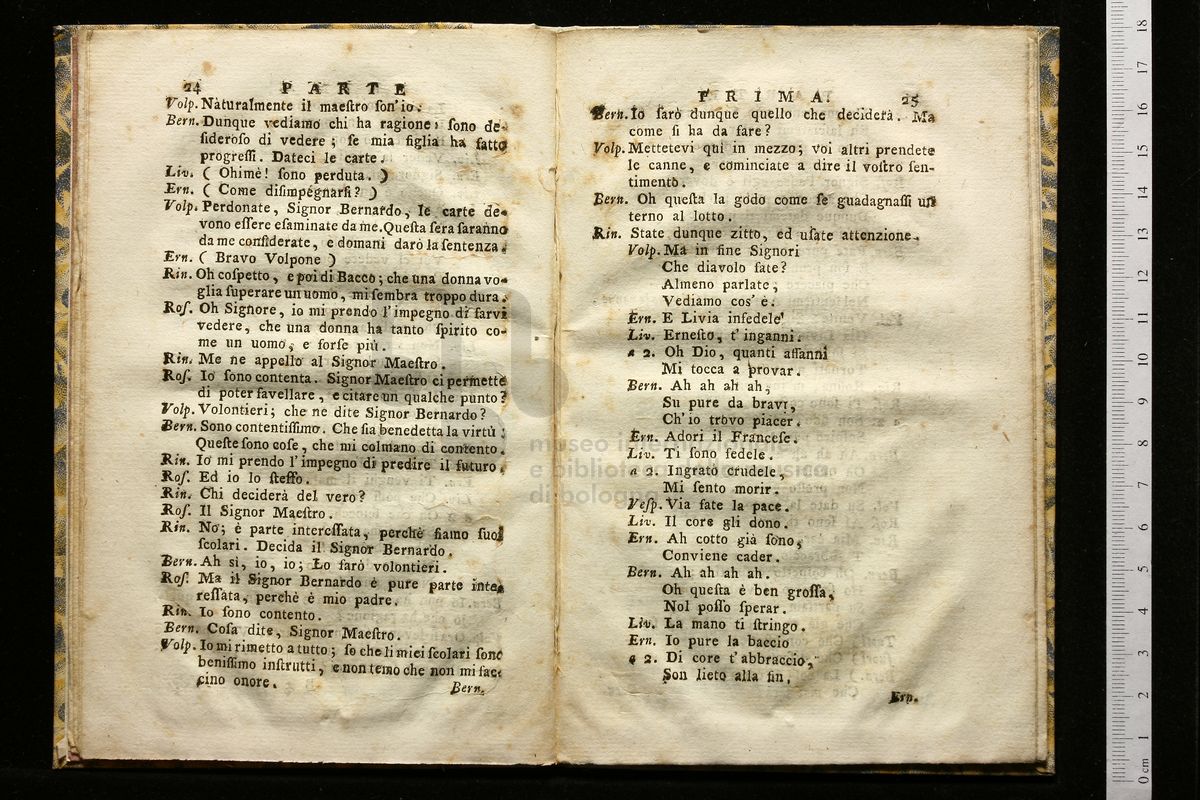 24 PARTE
Volp. Naturalmente il maeſtro ſon' io.
Bern. Dunque vediamo chi ha ragione; ſono de-
ſideroſo di vedere; ſe mia figlia ha fatto
progreſſi. Dateci le carte.
Liv. ( Ohimè! ſono perduta. )
Ern. ( Come diſimpégnarſi? )
Volp. Perdonate, Signor Bernardo, le carte de-
vono eſſere eſaminate da me. Queſta ſera ſaranno
da me conſiderate, e domani darò la ſentenza.
Ern. ( Bravo Volpone )
Rin. Oh coſpetto, e poi di Bacco; che una donna vo-
glia ſuperare un uomo, mi ſembra troppo dura.
Roſ. Oh Signore, io mi prendo l'impegno di farvi
vedere, che una donna ha tanto ſpirito co-
me un uomo, e forſe più.
Rin. Me ne appello al Signor Maeſtro.
Roſ. Io ſono contenta. Signor Maeſtro ci permette
di poter favellare, e citare un qualche punto?
Volp. Volontieri; che ne dite Signor Bernardo?
Bern. Sono contentiſſimo. Che ſia benedetta la virtù;
Queſte ſono coſe, che mi colmano di contento.
Rin. Io mi prendo l'impegno di predire il futuro.
Roſ. Ed io lo ſteſſo.
Rin. Chi deciderà del vero?
Roſ. Il Signor Maeſtro.
Rin. No; è parte intereſſata, perchè ſiamo ſuoi
ſcolari. Decida il Signor Bernardo.
Bern. Ah sì, io, io; Lo farò volontieri.
Roſ. Ma il Signor Bernardo è pure parte inte-
reſſata, perchè è mio padre.
Rin. Io ſono contento.
Bern. Coſa dite, Signor Maeſtro.
Volp. Io mi rimetto a tutto; ſo che li miei ſcolari ſono
beniſſimo inſtrutti, e non temo che non mi fac-
cino onore.
Bern.
PRIMA. 25
Bern. Io farò dunque quello che deciderà. Ma
come ſi ha da fare?
Volp. Mettetevi qui in mezzo; voi altri prendete
le canne, e cominciate a dire il voſtro ſen-
timento.
Bern. Oh queſta la godo come ſe guadagnaſſi un
terno al lotto.
Rin. State dunque zitto, ed uſate attenzione.
Volp. Ma in fine Signori
Che diavolo fate?
Almeno parlate,
Vediamo cos' è.
Ern. E Livia infedele
Liv. Erneſto, t'inganni.
a 2. Oh Dio, quanti affanni
Mi tocca a provar.
Bern. Ah ah ah ah,
Su pure da bravi,
Ch'io trovo piacer.
Ern. Adori il Franceſe.
Liv. Ti ſono fedele.
a 2. Ingrato crudele,
Mi ſento morir.
Veſp. Via fate la pace.
Liv. Il core gli dono.
Ern. Ah cotto già ſono,
Conviene cader.
Bern. Ah ah ah ah.
Oh queſta è ben groſſa,
Nol poſſo ſperar.
Liv. La mano ti ſtringo.
Ern. Io pure la baccio
a 2. Di core t'abbraccio,
Son lieto alla fin,
Ern.